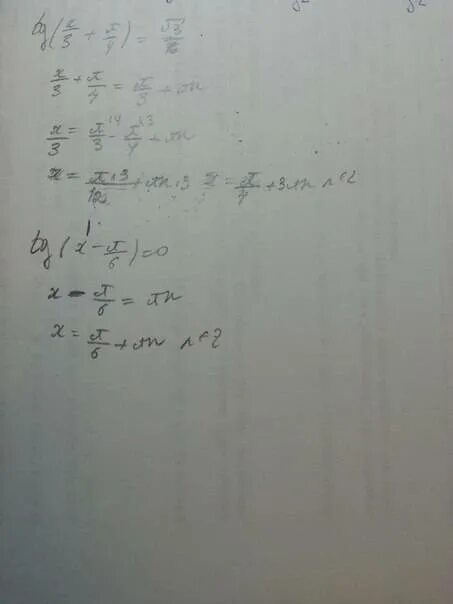 tg(x/3 + π/4) = √3
x/3 + π/4 = π/3 + πn
x/3 = π/3 ^(4 - π/4 ^(3 + πn
x = π·3/12 + πn·3 x = π/4 + 3πn n∈Z
tg(x - π/6) = 0
x - π/6 = πn
x = π/6 + πn n∈Z